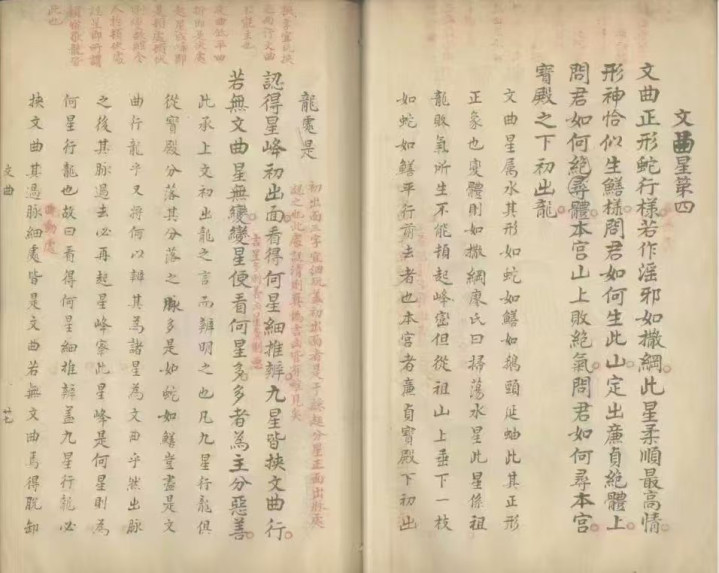 文曲星第四
文曲正形蛇行樣若作淫邪如撒網此星柔順最高情
形神恰似生鱔樣問君如何生此山定出廉貞絶體上
問君如何絶尋體本宮山上敗絶氣問君如何尋本宮
寶殿之下初出龍
文曲星属水其形如蛇如鱔如鵝頸延蚰此其正形
正象也变體則如撒網廖氏曰掃蕩水星此星係祖
龍敗氣所生不能頓起峰巒但從祖山上垂下一枝
如蛇如鱔平行前去者也本宮者廉貞寶殿下初出
龍處是
初出面三字宜細玩蓋初出面者是于
認得星峰初出面看得何星細推辨九星皆挾文曲行
若無文曲星無變變星便看何星多多者為主分惡善
此承上文初出龍之言而辨明之也凡九星行龍俱
從寳殿分落其分落之脉多是如蛇如鱔豈盡是文
曲行龍乎又將何以辨其為諸星為文曲乎然出脉
之後其脉過去必再起星峰察此星峰是何星則為
何星行龍也故曰看得何星細推辨盖九星行龍必
挾文曲其過脉細處皆是文曲若無文曲焉得脱卸
文曲